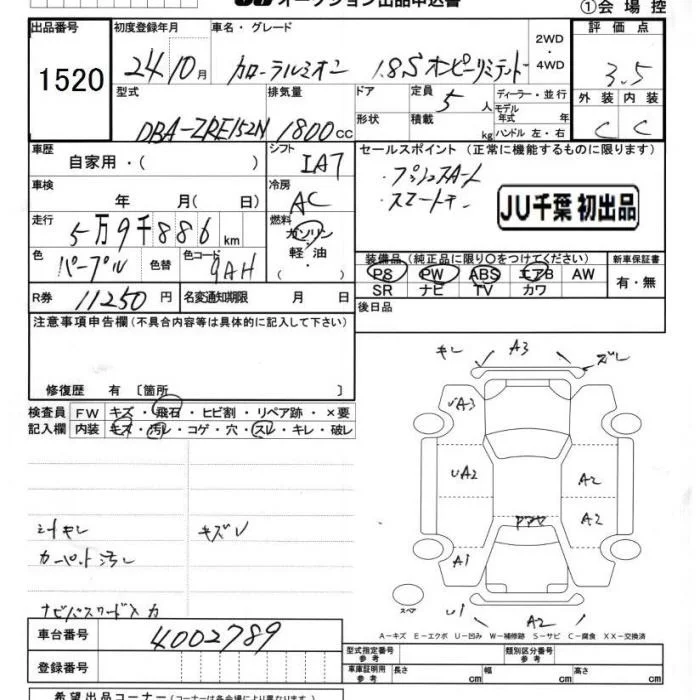 オークション出品申込書
①会場控
出品番号
1520
初度登録年月
24.10月
車名・グレード
カローラルミオン 1.8S オンビーリミテッド
2WD
・
4WD
評価点
3.5
外装 内装
C C
型式
DBA-ZRE152N
排気量
1800cc
ドア
形状
定員
5人
積載
kg
ディーラー・並行
モデル
年式 年
ハンドル 左・右
車歴
自家用・( )
シフト
IA7
車検
年 月( 日)
冷房
AC
走行
5万9千886km
燃料
ガソリン
・
軽油
・
色
パープル
色替
色コード
9AH
R券
11250円
名変通知期限 月 日
セールスポイント (正常に機能するものに限ります)
・プッシュスタート
・スマートキー
JU千葉 初出品
装備品(純正品に限り○をつけてください)
PS PW ABS エアB AW
SR ナビ TV カワ
新車保証書
有・無
後日品
注意事項申告欄(不具合内容等は具体的に記入して下さい)
修復歴 有 〔箇所 〕
検査員
記入欄
FW キズ・飛石・ヒビ割・リペア跡・×要
内装 キズ・汚レ・コゲ・穴・スレ・キレ・破レ
キレ A3 ズレ
UA3
UA2 A2
A2
A1
スペア
U1 A2
キズレ
カーペット汚レ
ナビパスワード入力
A-キズ E-エクボ U-凹み W-補修跡 S-サビ C-腐食 XX-交換済
車台番号
4002789
登録番号
型式指定番号
参考
類別区分番号
参考
車庫証明用
参考
長さ cm 幅 cm 高さ cm
希望出品コーナー(コーナーは各会場により異なります)